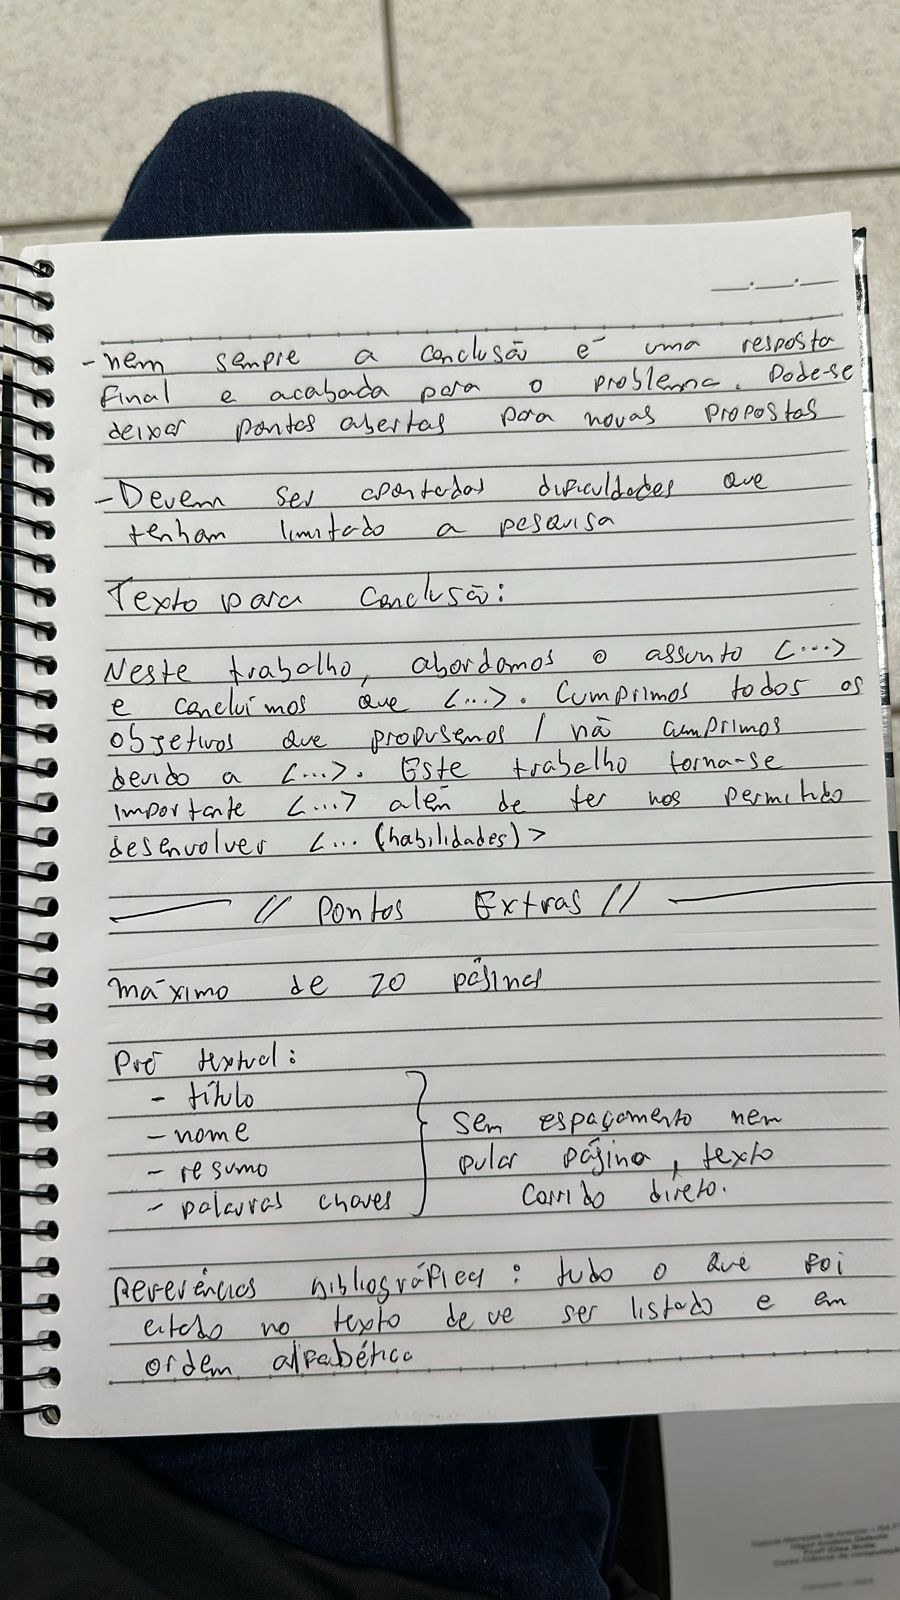 __.__.__
- nem sempre a conclusão é uma resposta
final e acabada para o problema. Pode-se
deixar pontos abertos para novas propostas
- Devem ser apontadas dificuldades que
tenham limitado a pesquisa
Texto para conclusão:
Neste trabalho, abordamos o assunto <...>
e concluímos que <...>. Cumprimos todos os
objetivos que propusemos / não cumprimos
devido a <...>. Este trabalho torna-se
importante <...> além de ter nos permitido
desenvolver <... (habilidades)>
// Pontos Extras //
máximo de 20 páginas
Pré textual:
- título
- nome
- resumo
- palavras chaves
Sem espaçamento nem
pular página, texto
corrido direto.
Referências bibliográficas: tudo o que foi
citado no texto deve ser listado e em
ordem alfabética